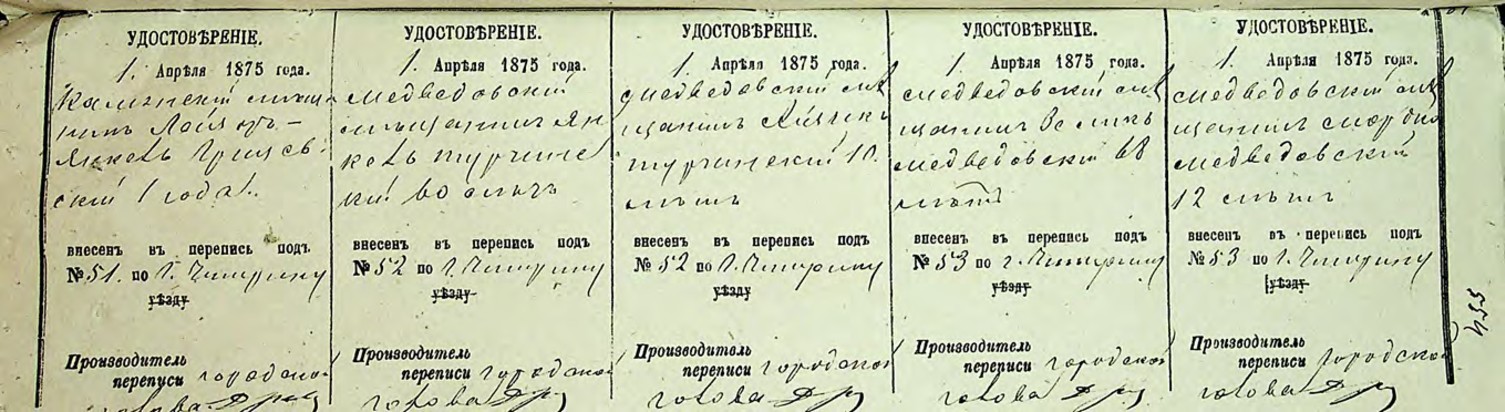 УДОСТОВѢРЕНІЕ.
1. Апрѣля 1875 года.
Каменскій мѣща-
нинъ
скій 1 года.
внесенъ въ перепись подъ
№ 51. по г. Чигирину
уѣзду
Производитель
переписи городской
голова
УДОСТОВѢРЕНІЕ.
1. Апрѣля 1875 года.
медведовскій
мѣщанинъ Ян
кель турчинс
кій 60 лѣтъ
внесенъ въ перепись подъ
№ 52 по г. Чигирину
уѣзду
Производитель
переписи городской
голова
УДОСТОВѢРЕНІЕ.
1. Апрѣля 1875 года.
медведовскій мѣ
щанинъ
турчинскій 10.
лѣтъ
внесенъ въ перепись подъ
№ 52 по г. Чигирину
уѣзду
Производитель
переписи городской
голова
УДОСТОВѢРЕНІЕ.
1. Апрѣля 1875 года.
медведовскій мѣ
щанинъ
медведовскій 68
лѣтъ
внесенъ въ перепись подъ
№ 53 по г. Чигирину
уѣзду
Производитель
переписи городской
голова
УДОСТОВѢРЕНІЕ.
1. Апрѣля 1875 года.
медведовскій мѣ
щанинъ мордко
медведовскій
12 лѣтъ
внесенъ въ перепись подъ
№ 53 по г. Чигирину
уѣзду
Производитель
переписи городской
голова